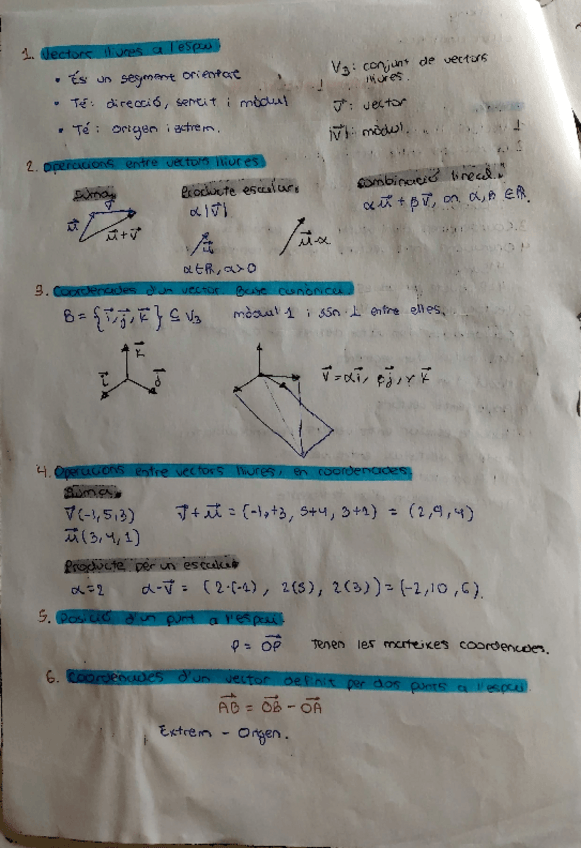 1. Vectors lliures a l'espai
• És un segment orientat
• Té: direcció, sentit i mòdul
• Té: origen i extrem.
V₃: conjunt de vectors
lliures.
v⃗: vector
|v⃗|: mòdul.
2. Operacions entre vectors lliures
Suma
v⃗
u⃗
u⃗+v⃗
Producte escalar
α|v⃗|
u⃗
u⃗·α
α∈R, α>0
Combinació lineal
αu⃗ + βv⃗, on α, β ∈ R.
3. Coordenades d'un vector. Base canònica
B = {i⃗, j⃗, k⃗} ⊆ V₃ mòdul 1 i són ⊥ entre elles.
k⃗
i⃗ j⃗
v⃗ = αi⃗, βj⃗, γk⃗
4. Operacions entre vectors lliures, en coordenades.
Suma
v⃗(-1,5,3) v⃗+u⃗ = (-1,+3, 5+4, 3+1) = (2,9,4)
u⃗(3,4,1)
Producte per un escalar
α=2 α·v⃗ = (2·(-1), 2(5), 2(3)) = (-2,10,6).
5. Posició d'un punt a l'espai
P = OP⃗ Tenen les mateixes coordenades.
6. Coordenades d'un vector definit per dos punts a l'espai
AB⃗ = OB⃗ - OA⃗
Extrem - Origen.